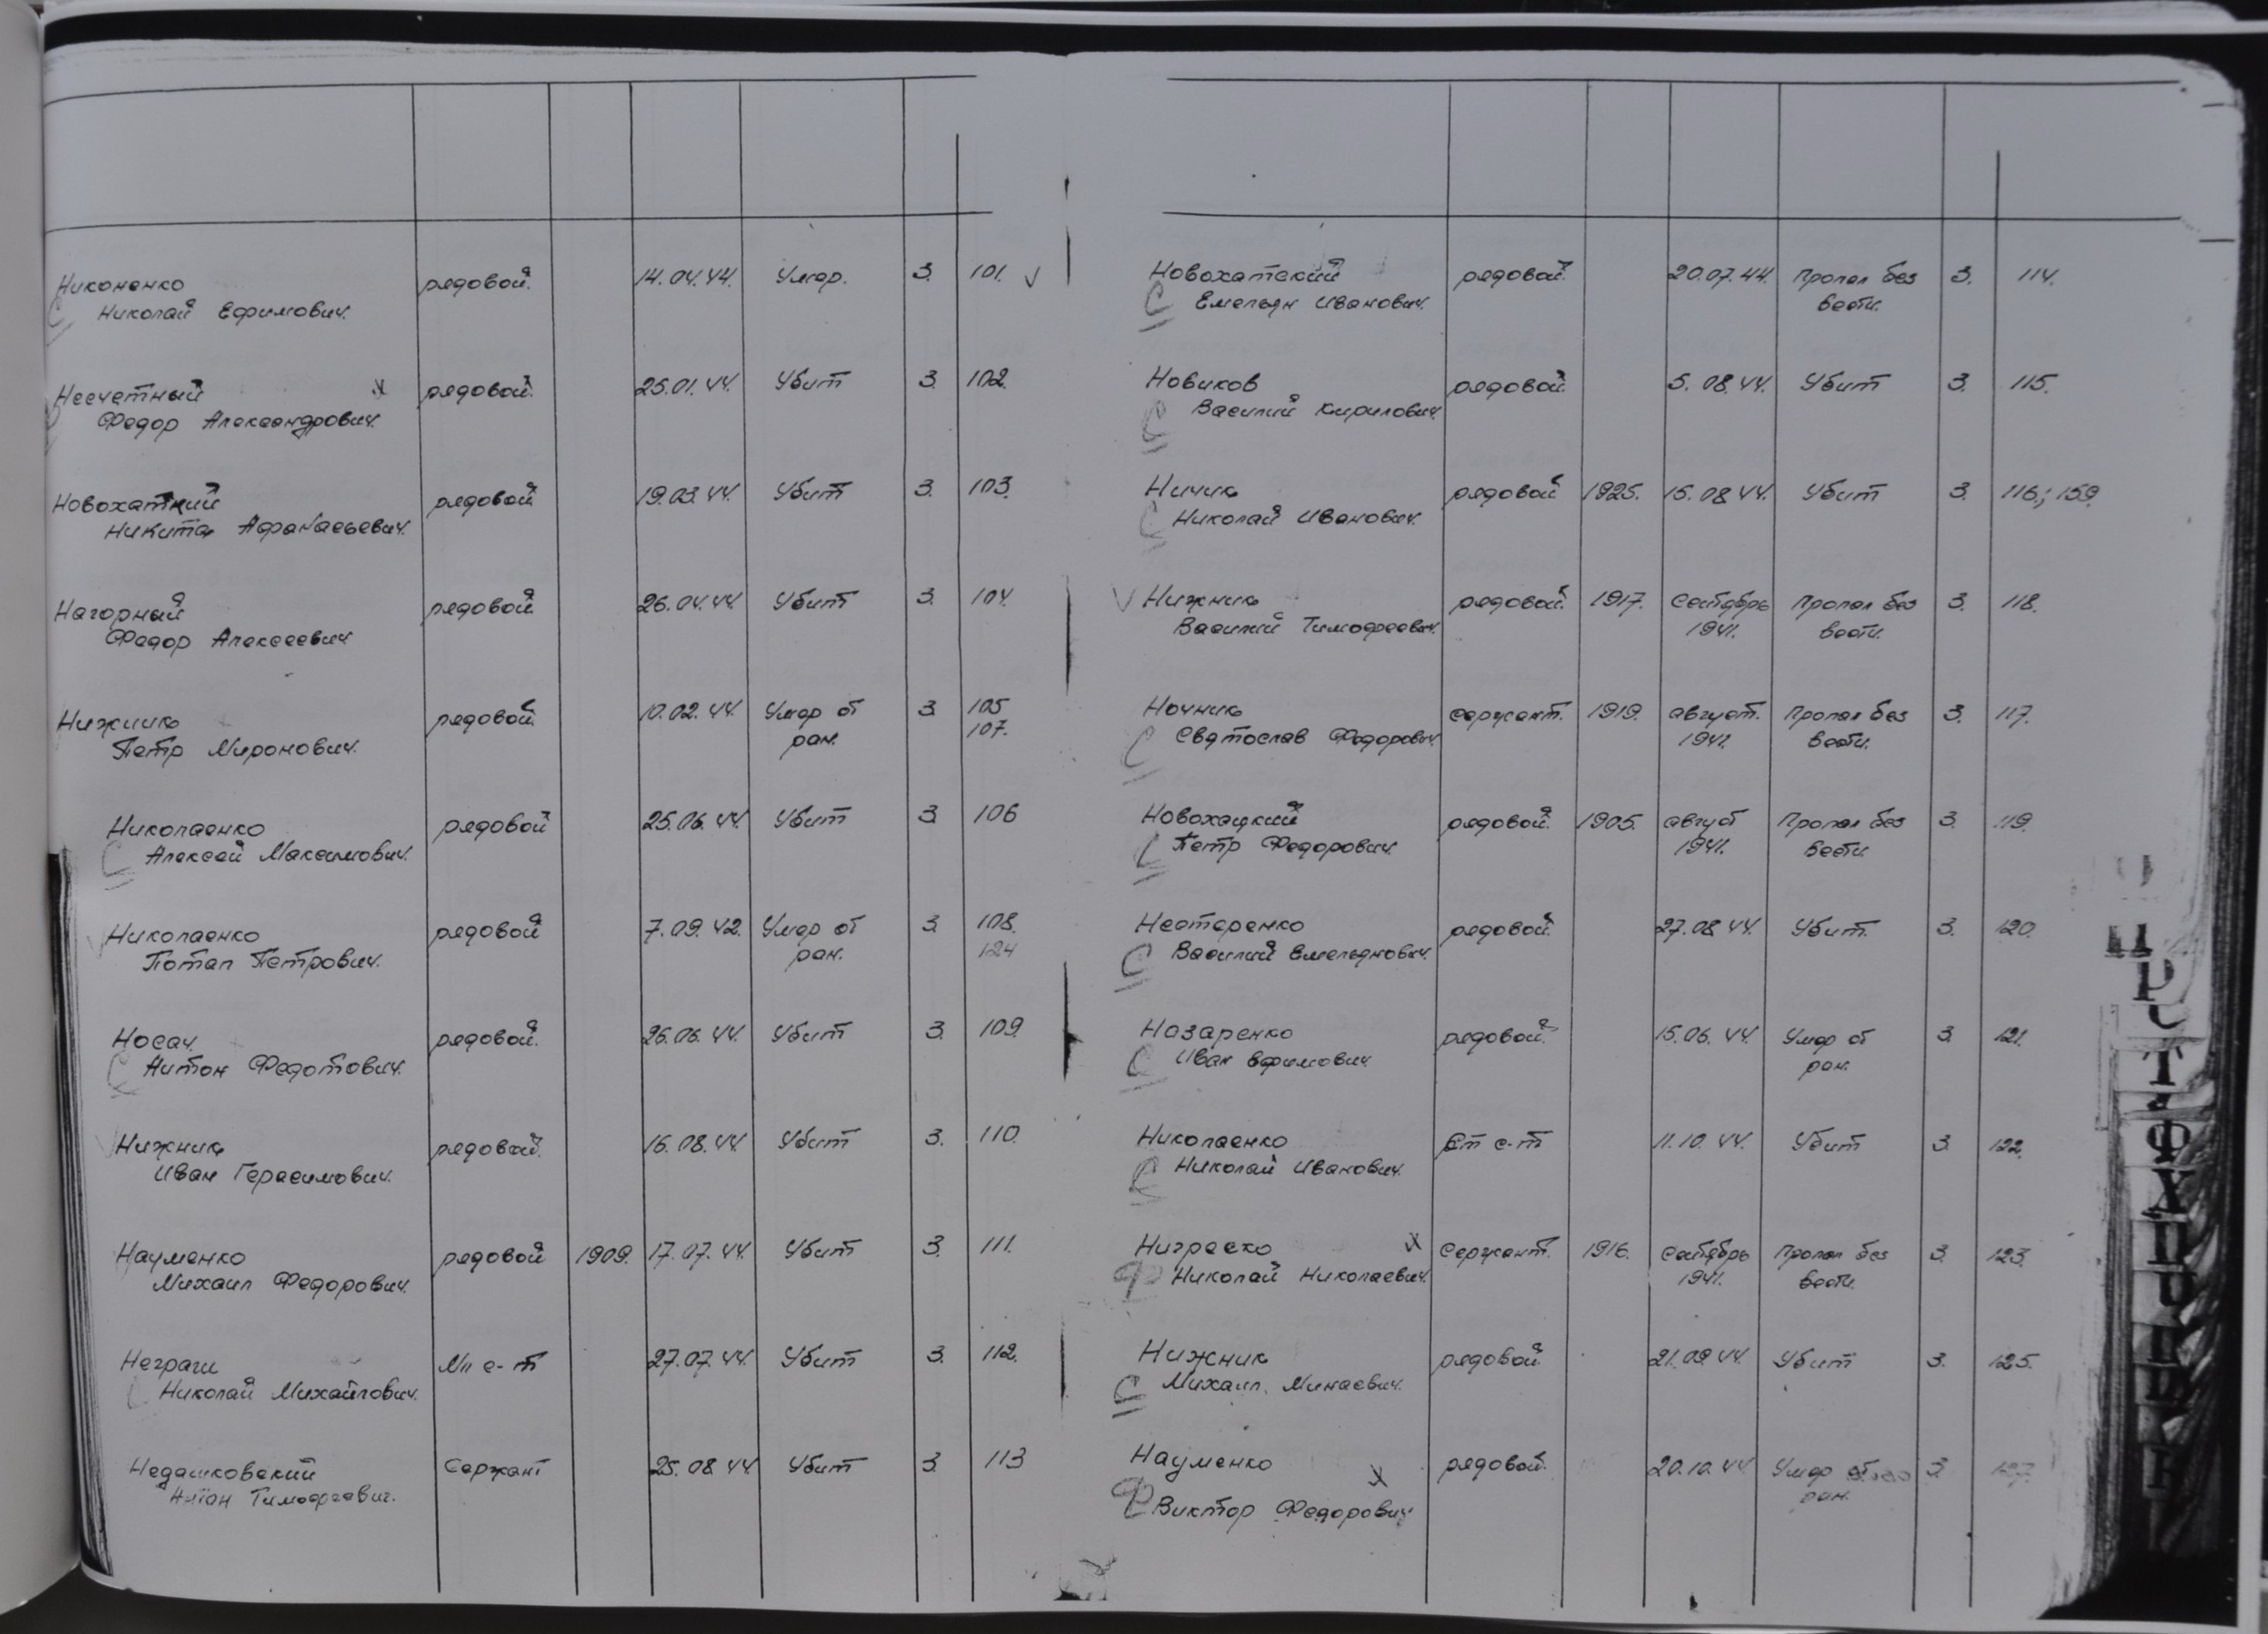 Никоненко рядовой. 14.04.44. Умер. 3. 101. √
С Николай Ефимович.
Несчетный х рядовой. 25.01.44. Убит 3. 102.
Федор Александрович.
Новохатний рядовой 19.03.44. Убит 3. 103.
Никита Афанасьевич.
Нагорный рядовой 26.04.44. Убит 3. 104.
Федор Алексеевич
Нижник рядовой. 10.02.44. Умер от 3. 105
Петр Миронович. ран. 107.
Николаенко рядовой 25.06.44. Убит 3. 106
С Алексей Максимович.
Николаенко рядовой 7.09.42. Умер от 3. 108.
Потап Петрович. ран. 124
Носач рядовой. 26.06.44. Убит 3. 109.
С Антон Федотович.
√ Нижник рядовой. 16.08.44. Убит 3. 110.
Иван Герасимович.
Науменко рядовой 1909. 17.07.44. Убит 3. 111.
Михаил Федорович.
Неграш Мл с-т 27.07.44. Убит 3. 112.
С Николай Михайлович.
Недашковский Сержант 25.08.44 Убит 3. 113
Антон Тимофеевич.
Новохатский рядовой. 20.07.44. Пропал без 3. 114.
С Емельян Иванович. вести.
Новиков рядовой. 5.08.44. Убит 3. 115.
С Василий Кирилович.
Ничик рядовой 1925. 15.08.44. Убит 3. 116.; 159.
С Николай Иванович.
√ Нижник рядовой. 1917. Сентябрь Пропал без 3. 118.
Василий Тимофеевич. 1941. вести.
Ночник сержант. 1919. август. Пропал без 3. 117.
С Святослав Федорович. 1941. вести.
Новохацкий рядовой. 1905. август Пропал без 3. 119.
С Петр Федорович. 1941. вести.
Нестеренко рядовой. 27.08.44. Убит. 3. 120.
С Василий Емельянович.
Назаренко рядовой. 15.06.44. Умер от 3. 121.
С Иван Ефимович. ран.
Николаенко Ст с-т 11.10.44. Убит 3. 122.
С Николай Иванович.
х Сержант. 1916. Сентябрь Пропал без 3. 123.
Ф Николай Николаевич. 1941. вести.
Нижник рядовой. 21.09.44. Убит 3. 125.
С Михаил. Минаевич.
Науменко х рядовой. 20.10.44. Умер от 3. 127.
Ф Виктор Федорович ран.
Р
С
Т
Ф
Х